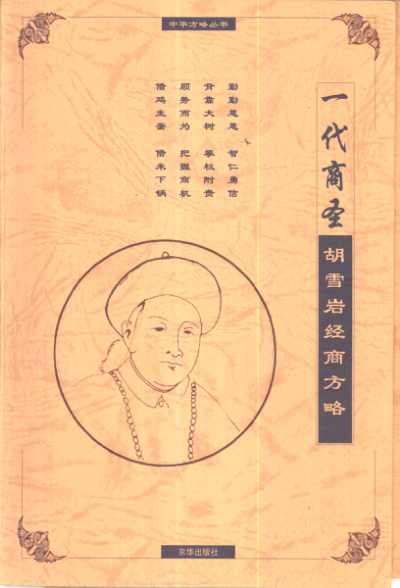 中华方略丛书
一代商圣
胡雪岩经商方略
勤勤恳恳 智仁勇信
背靠大树 攀权附贵
顺势而为 把握商机
借鸡生蛋 借米下锅
京华出版社